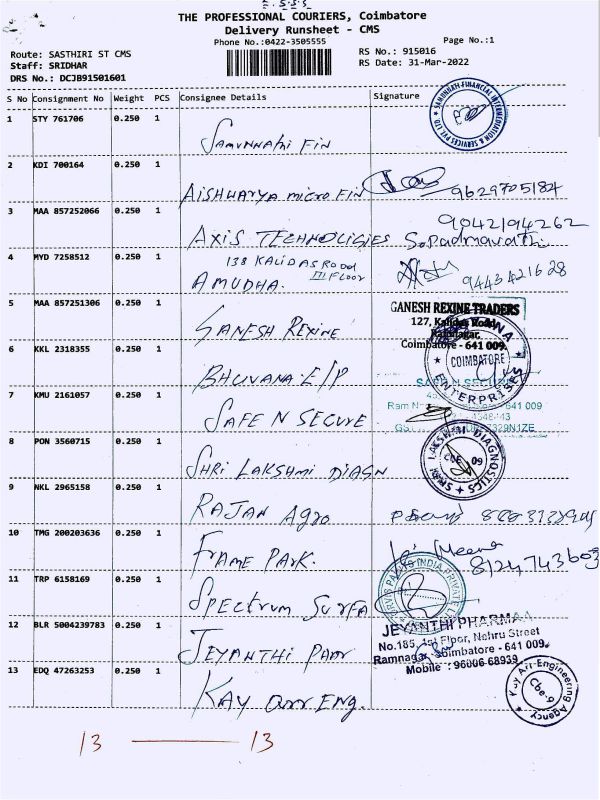 THE PROFESSIONAL COURIERS, Coimbatore
Delivery Runsheet - CMS
Phone No.:0422-3505555
Page No.:1
Route: SASTHIRI ST CMS
RS No.: 915016
Staff: SRIDHAR
RS Date: 31-Mar-2022
DRS No.: DCJB91501601
S No Consignment No Weight PCS Consignee Details Signature
1 STY 761706 0.250 1
SAMUNNATHI FIN
2 KDI 700164 0.250 1
AISHWARYA MICRO FIN 9629705184
3 MAA 857252066 0.250 1
9842194262
AXIS TECHNOLIGIES S.Padmavathi
4 MYD 7258512 0.250 1
138 KALIDAS ROAD
III FLOOR
AMUDHA. 9443421628
5 MAA 857251306 0.250 1
GANESH REXINE TRADERS
127, Kalidas Road,
Ramnagar,
Coimbatore - 641 009.
GANESH REXINE
6 KKL 2318355 0.250 1
COIMBATORE
ENTERPRISES
BHUVANA E/P
7 KMU 2161057 0.250 1
641 009
SAFE N SECURE
8 PON 3560715 0.250 1
LAKSHMI DIAGNOSTICS
CBE 09
SHRI LAKSHMI DIAGN
9 NKL 2965158 0.250 1
RAJAN Agro
10 TMG 200203636 0.250 1
FRAME PARK.
8124743603
11 TRP 6158169 0.250 1
INDIA PRIVATE
SPECTRUM SURFA
12 BLR 5004239783 0.250 1
JEYANTHI PHARMAA
No.185, 1st Floor, Nehru Street
Ramnagar, Coimbatore - 641 009.
Mobile : 96006 68939
JEYANTHI PHAR
13 EDQ 47263253 0.250 1
Kay Arr Engineering Agency
Cbe-9
KAY ARR ENG.
13 — 13